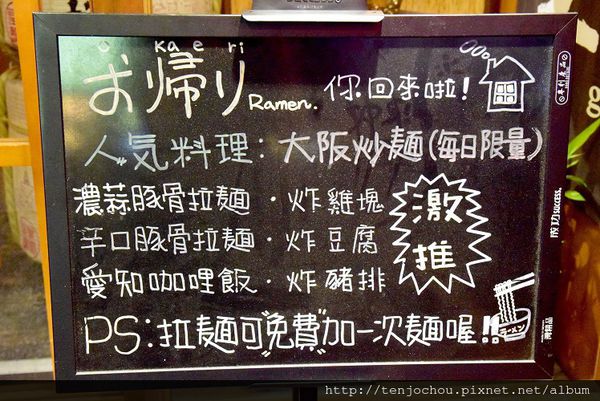 success
o ka e ri
お帰り Ramen. 你回來啦!
人気料理: 大阪炒麵(每日限量)
濃蒜豚骨拉麵 · 炸雞塊
辛口豚骨拉麵 · 炸豆腐
愛知咖哩飯 · 炸豬排
激推
PS: 拉麵可"免費"加一次麵喔!!
ラーメン
成功 success
http://tenjochou.pixnet.net/album